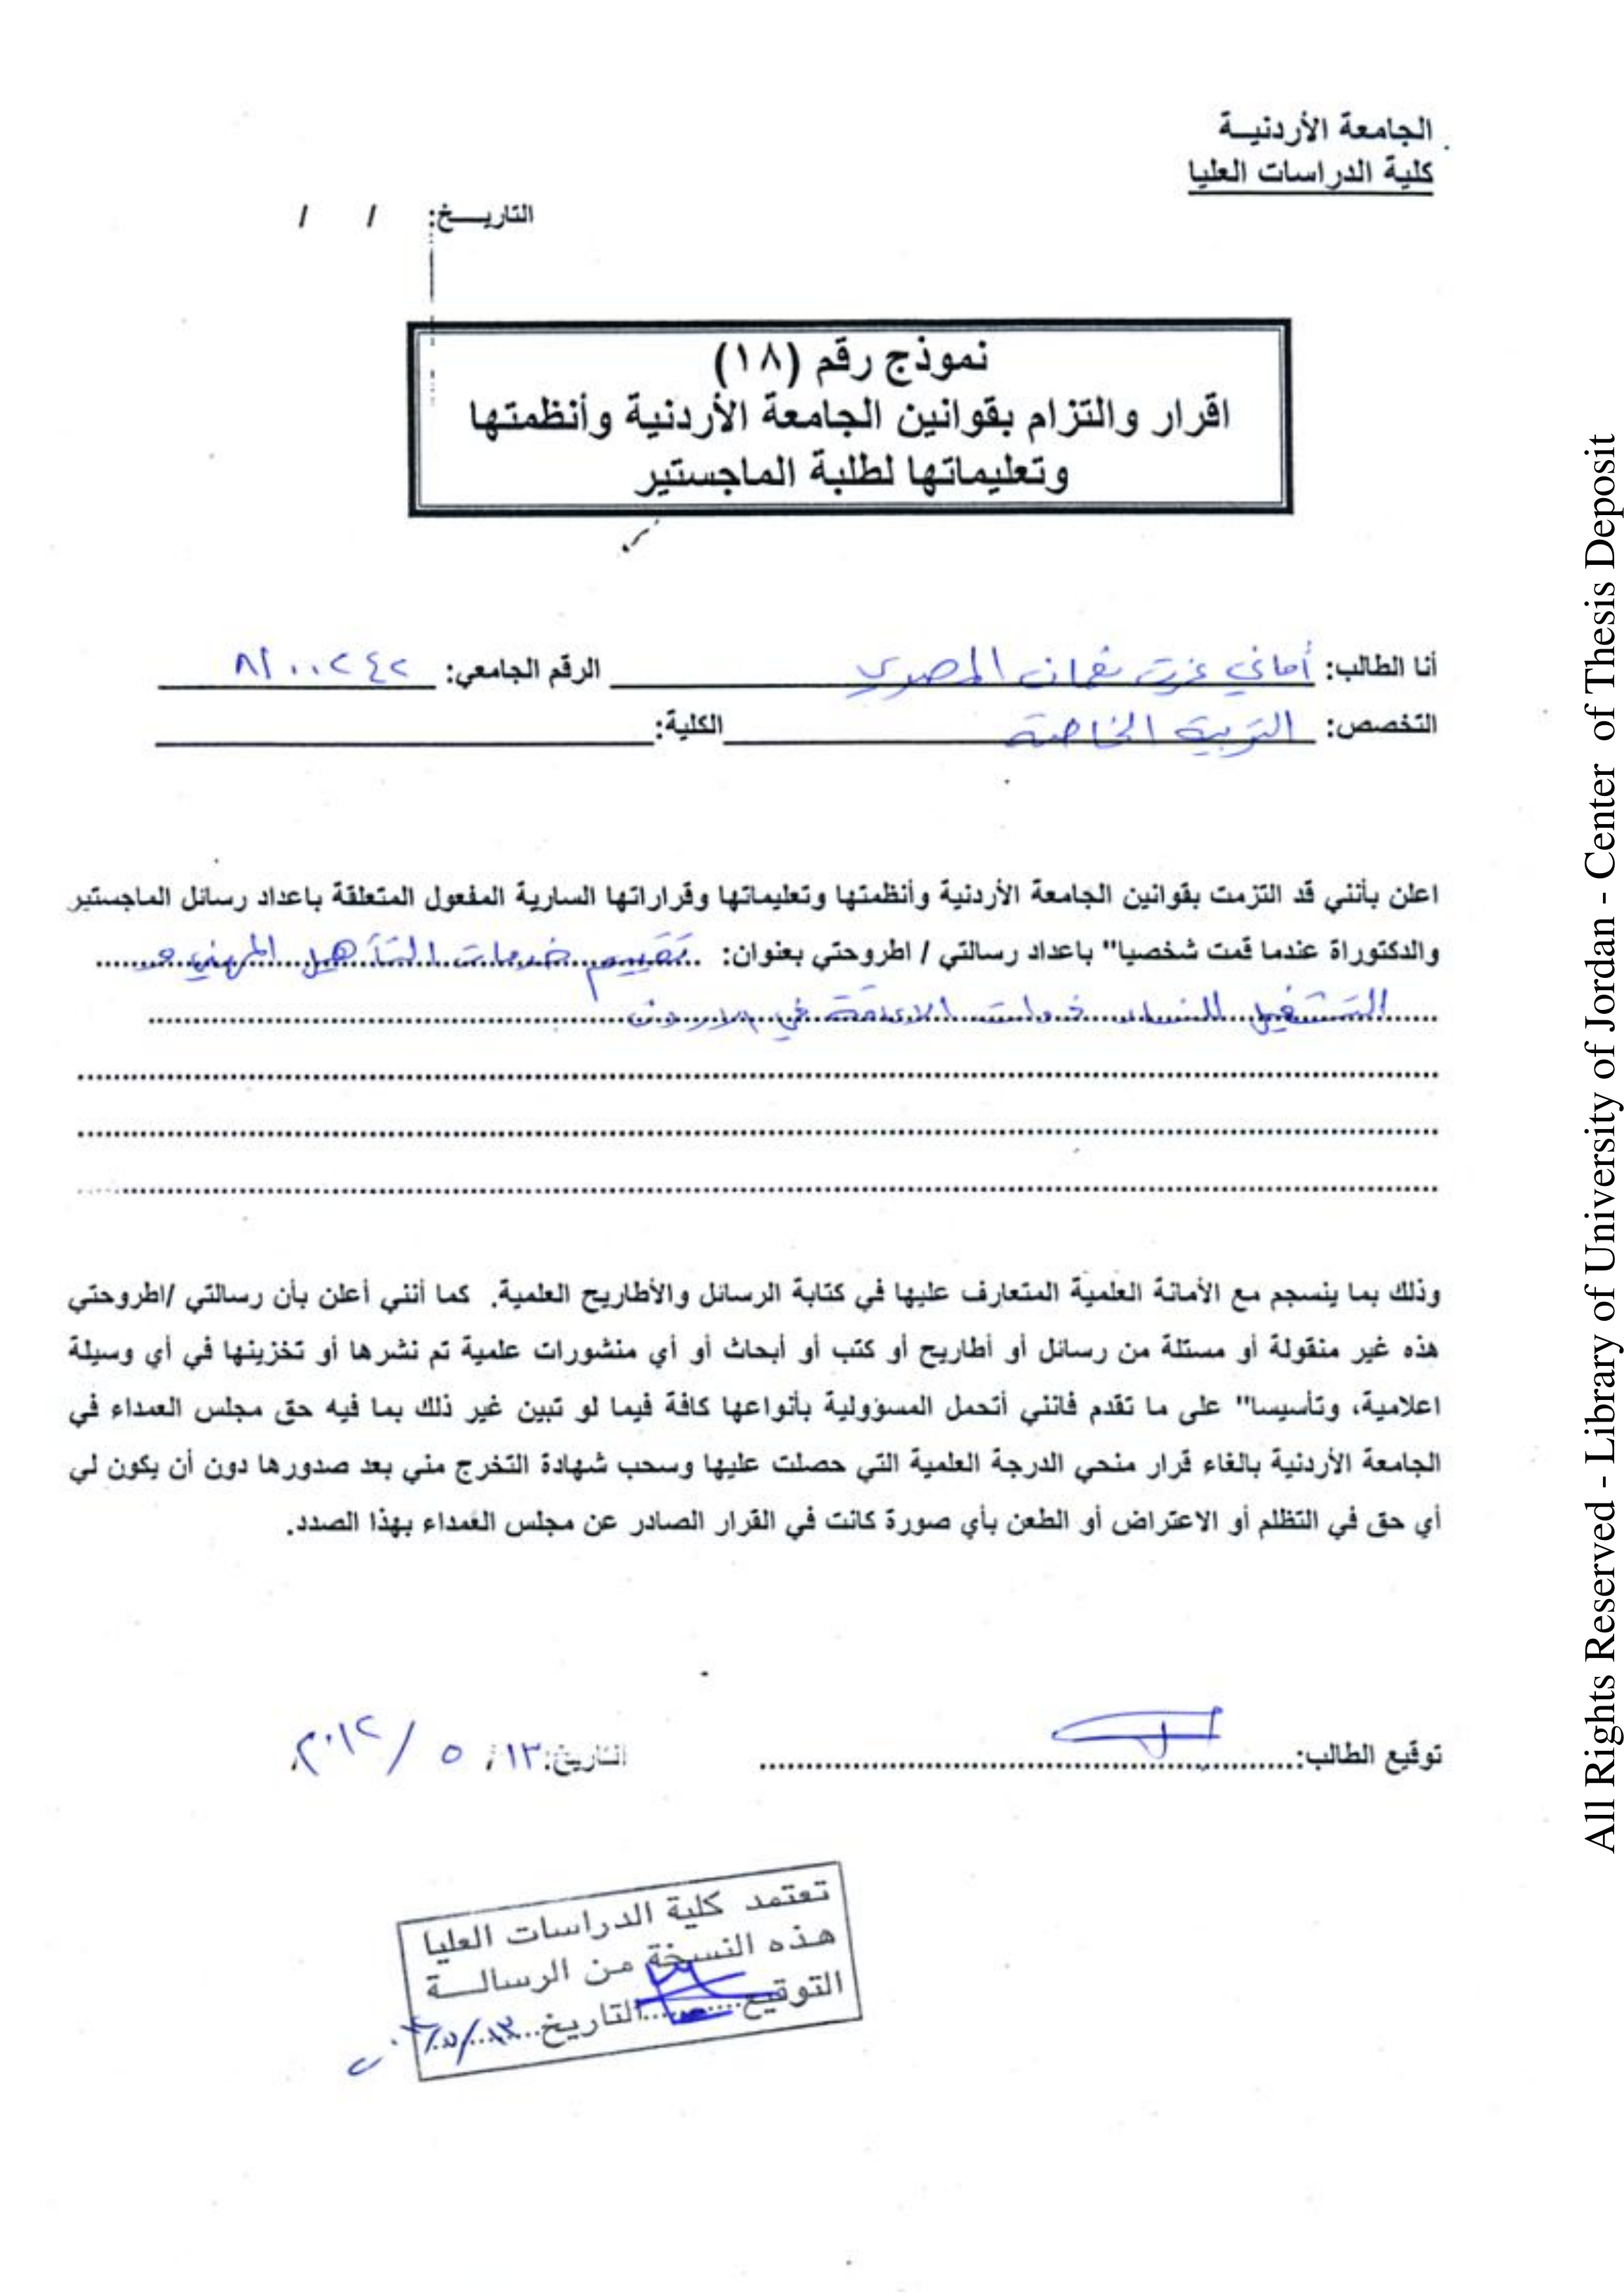 الجامعة الأردنيـة
كلية الدراسات العليا
التاريـخ: / /
نموذج رقم (١٨)
اقرار والتزام بقوانين الجامعة الأردنية وأنظمتها
وتعليماتها لطلبة الماجستير
أنا الطالب: أماني عزت نعمان المصري الرقم الجامعي: ٨١٠٠٢٤٢
التخصص: التربية الخاصة الكلية:
اعلن بأنني قد التزمت بقوانين الجامعة الأردنية وأنظمتها وتعليماتها وقراراتها السارية المفعول المتعلقة باعداد رسائل الماجستير
والدكتوراة عندما قمت شخصيا" باعداد رسالتي / اطروحتي بعنوان: تقييم خدمات التأهيل المهني و
التشغيل للنساء ذوات الإعاقة في الاردن
وذلك بما ينسجم مع الأمانة العلمية المتعارف عليها في كتابة الرسائل والأطاريح العلمية. كما أنني أعلن بأن رسالتي /اطروحتي
هذه غير منقولة أو مستلة من رسائل أو أطاريح أو كتب أو أبحاث أو أي منشورات علمية تم نشرها أو تخزينها في أي وسيلة
اعلامية، وتأسيسا" على ما تقدم فانني أتحمل المسؤولية بأنواعها كافة فيما لو تبين غير ذلك بما فيه حق مجلس العمداء في
الجامعة الأردنية بالغاء قرار منحي الدرجة العلمية التي حصلت عليها وسحب شهادة التخرج مني بعد صدورها دون أن يكون لي
أي حق في التظلم أو الاعتراض أو الطعن بأي صورة كانت في القرار الصادر عن مجلس العمداء بهذا الصدد.
توقيع الطالب: التاريخ: ١٣ / ٥ / ٢٠١٢
تعتمد كلية الدراسات العليا
هذه النسخة من الرسالـــة
التوقيع.......التاريخ
All Rights Reserved - Library of University of Jordan - Center of Thesis Deposit